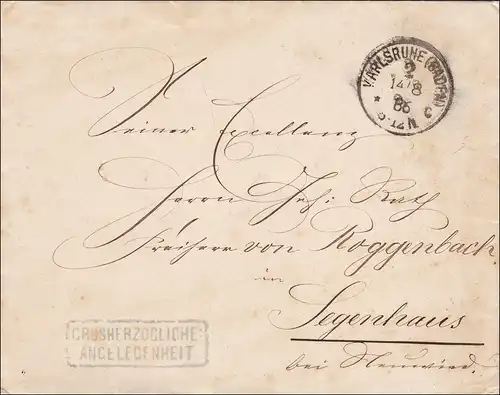 KARLSRUHE (BADEN)
2
14/8
86
Seiner Excellenz
Herrn Geh: Rath
Freiherr von Roggenbach
in
Segenhaus
bei Neuwied.
GROSHERZOGLICHE
ANGELEGENHEIT